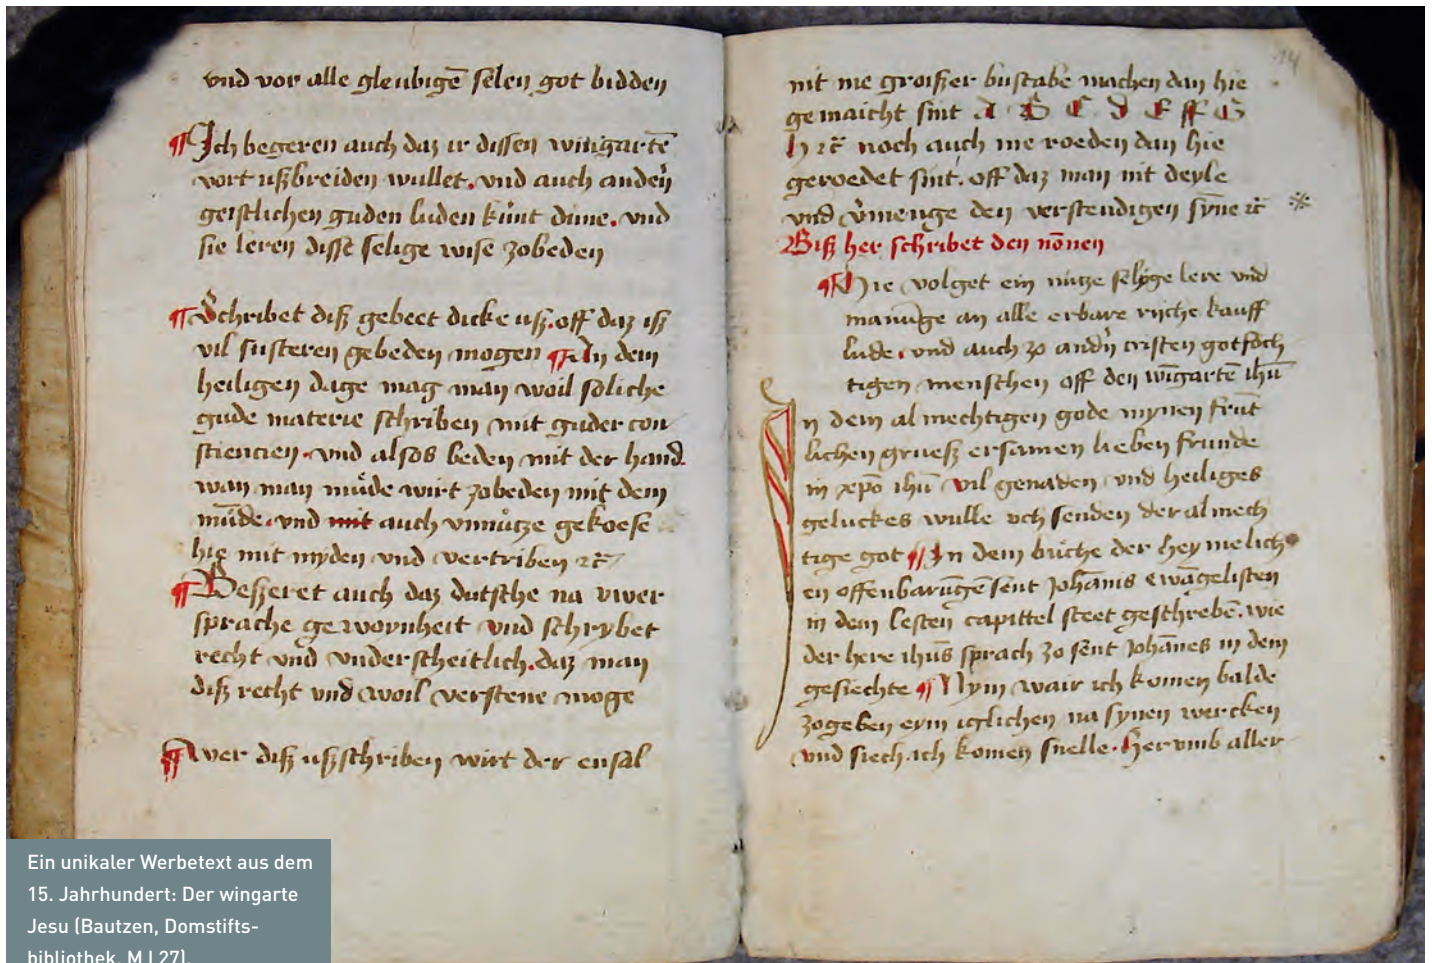 vnd vor alle gleubigē selen got bidden
¶ Ich begeren auch daz ir dissen wingartē
vort ußbreiden wullet. vnd auch andeñ
geistlichen guden luden kůnt dūne. vnd
sie leren disse selige wise zobeden
¶ Schribet diß gebeet dicke uß. off daz iß
vil susteren gebeden mogen ¶ An dem
heiligen dage mag man woil soliche
gude materie schriben mit guder con
sciencien. vnd alsos beden mit der hand.
wan man můde wirt zobeden mit dem
můde. vnd mit auch vnnůtze gekoese
hie mit myden vnd vertriben ⁊c̄
¶ Besseret auch daz dutsche na uwer
sprache gewoynheit vnd schrybet
recht vnd vnderscheitlich. daz man
diß recht vnd woil verstene moge
¶ Wer diß ußschriben wirt der ensal
14
nit me groißer bustabe machen dan hie
gemaicht sint A B C D E ff G
h ⁊c̄ noch auch me roeden dan hie
geroedet sint. off daz man nit deyle
vnd v̄menge den verstendigen syne ⁊c̄
Biß her schribet den nōnen
¶ Hie volget ein nutze selyge lere vnd
manūge an alle erbare rijche kauff
lude. vnd auch zo andñ cristen gotfoch
tigen menschen off den wīgartē ihū
In dem almechtigen gode mynen frūt
lichen grueß ersamen lieben frunde
in xp̄o ihū vil genaden vnd heiliges
geluckes wulle uch senden der almech
tige got ¶ In dem buche der heymelich
en offenbarūgē sent Johānis ewāgelisten
in dem lesten capittel steet geschrebē. wie
der here ihūs sprach zo sent Johānes in dem
gesiechte ¶ Nym wair ich komen balde
zogeben eym iglichen na synen wercken
vnd siech. ich komen snelle. Her vmb aller
Ein unikaler Werbetext aus dem
15. Jahrhundert: Der wingarte
Jesu (Bautzen, Domstifts-
bibliothek, M I 27).